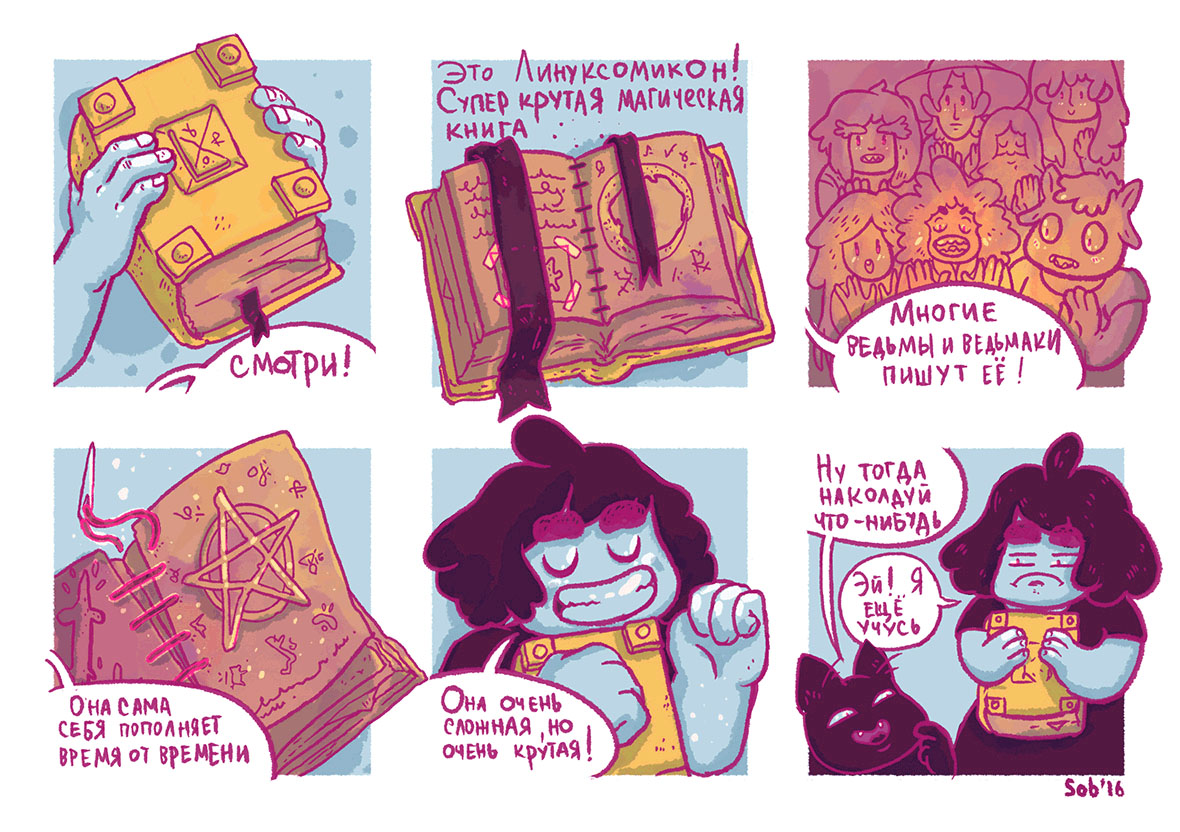 Смотри!
Это Линуксомикон!
Супер крутая магическая
книга
Многие
ведьмы и ведьмаки
пишут её!
Она сама
себя пополняет
время от времени
Она очень
сложная, но
очень крутая!
Ну тогда
наколдуй
что-нибудь
Эй! Я
ещё
учусь
Sob'16